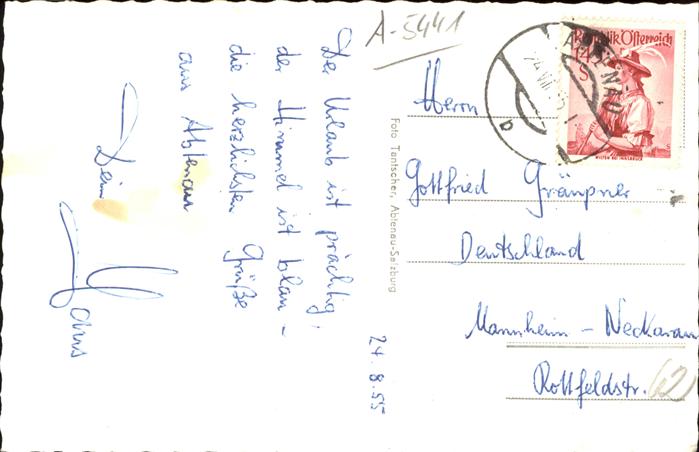 A-5441
Der Urlaub ist prächtig,
der Himmel ist blau -
die herzlichsten Grüße
aus Abtenau
Dein
Hans
24.8.55
Foto Tantscher, Abtenau-Salzburg
Republik Österreich
1.45
S
WILTEN BEI INNSBRUCK
ABTENAU
24.VIII.55
b
Herrn
Gottfried Gräupner
Deutschland
Mannheim - Neckarau
Rottfeldstr.